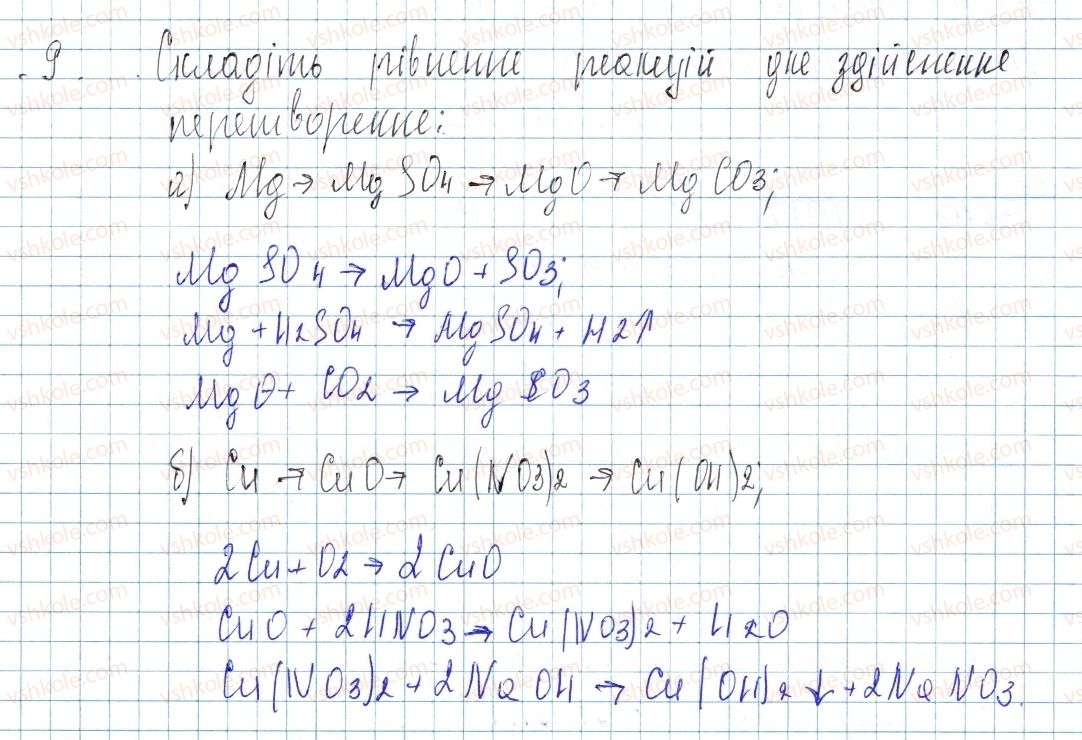 9. Складіть рівняння реакцій для здійснення
перетворення:
а) Mg → MgSO4 → MgO → MgCO3;
MgSO4 → MgO + SO3;
Mg + H2SO4 → MgSO4 + H2↑
MgO + CO2 → MgCO3
б) Cu → CuO → Cu(NO3)2 → Cu(OH)2;
2Cu + O2 → 2CuO
CuO + 2HNO3 → Cu(NO3)2 + H2O
Cu(NO3)2 + 2NaOH → Cu(OH)2↓ + 2NaNO3.